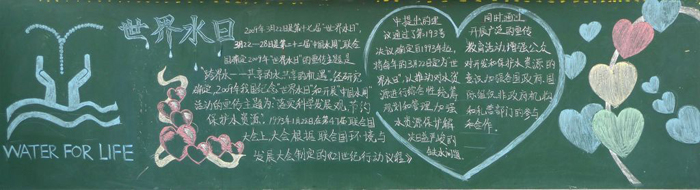 世界水日
WATER FOR LIFE
2009年3月22日是第十七届"世界水日",
3月22-28日是第二十二届"中国水周",联合
国确定2009年"世界水日"的宣传主题是
"跨界水—共享的水、共享的机遇",经研究
确定,2009年我国纪念"世界水日"和开展"中国水周"
活动的宣传主题为"落实科学发展观,节约
保护水资源。"1993年1月28日,在第47届联合国
大会上,大会根据联合国环境与
发展大会制定的《21世纪行动议程》
中提出的建
议通过了第193号
决议确定自1993年起,
将每年的3月22日定为"世
界水日",以推动对水资
源进行综合性统筹
规划和管理,加强
水资源保护解
决日益严峻的
缺水问题。
同时通过
开展广泛的宣传
教育活动,增强公众
对开发和保护水资源的
意识,加强各国政府、国
际组织、非政府机构
和私营部门的参与
和合作。